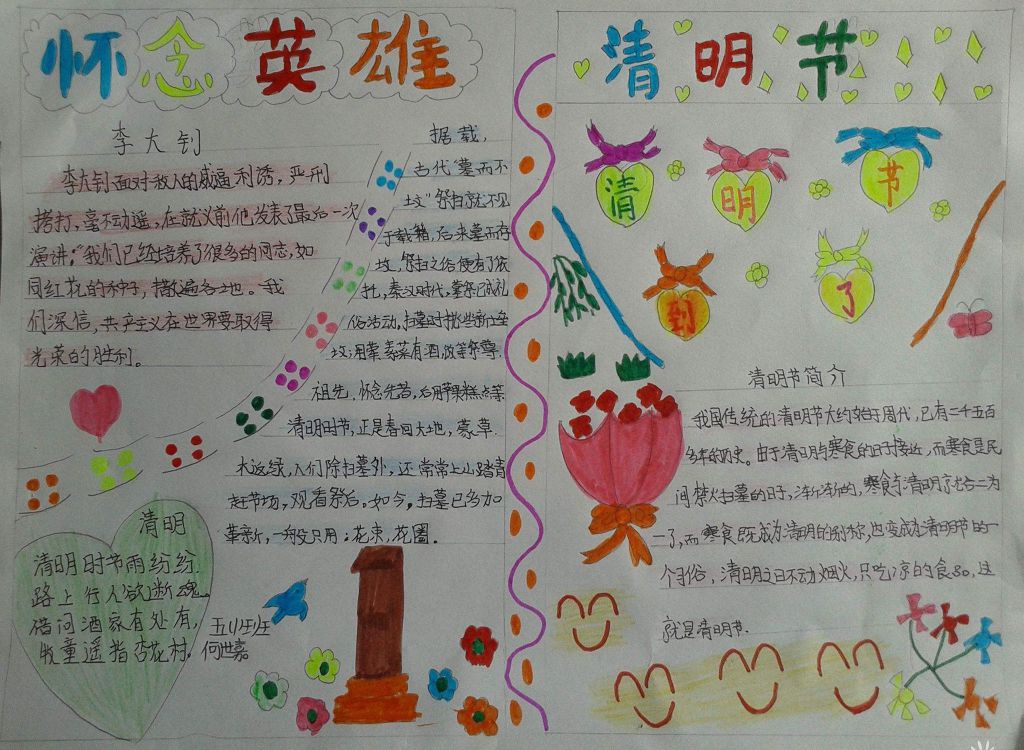 怀念英雄
李大钊
李大钊面对敌人的威逼利诱，严刑
拷打，毫不动遥，在就义前他发表了最后一次
演讲：“我们已经培养了很多的同志，如
同红花的种子，撒遍各地。我
们深信，共产主义在世界要取得
光荣的胜利。
据载，
古代“墓而不
坟”祭扫就不见
于载籍，后来墓而存
坟，祭扫之俗便有了依
托，秦汉时代，墓祭已成礼
俗活动，扫墓时挑些新土垒
坟；用荤素菜有酒，饭等祭尊
祖先，怀念先吉，后用苹果糕点等
清明时节，正是春回大地，
大返绿，人们除扫墓外，还常常上山踏青
赶节场，观看祭后。如今，扫墓已多加
革新，一般只用：花束，花圈。
清明
清明时节雨纷纷
路上行人欲断魂
借问酒家有处有，
牧童遥指杏花村，
五（）班
何世嘉
清明节
清
明
节
到
了
清明节简介
我国传统的清明节大约始于周代，已有二千五百
多年的历史。由于清明与寒食的日子接近，而寒食是民
间禁火扫墓的日子，渐渐的，寒食与清明了合二为
一了，而寒食既成为清明的别称，也变成为清明节的一
个习俗，清明之日不动烟火，只吃凉的食品，这
就是清明节.